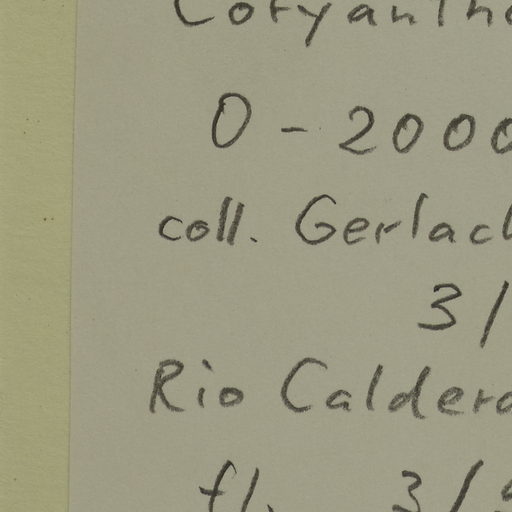 Coryanthe
O - 2000
coll. Gerlach
3/
Rio Caldera
fl. 3/9